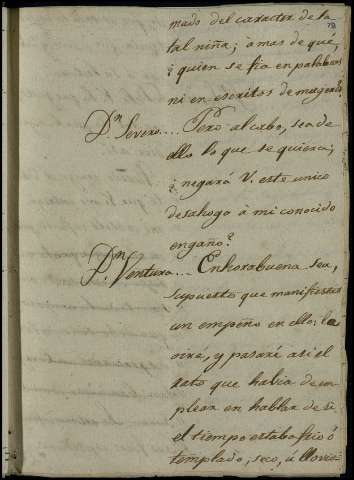 mado del caracter de la
tal niña; à mas de qué,
¿quien se fia en palabras
ni en escritos de mugeres?
Dⁿ. Severo.... Pero al cabo, sea de
ello lo que se quiera;
¿negará V. este unico
desahogo à mi conocido
engaño?
Dⁿ. Ventura.... Enhorabuena sea,
supuesto que manifiesta
un empeño en ello; le
oiré, y pasaré asi el
rato que habia de em
plear en hablar de si
el tiempo estaba frio ó
templado, seco, ó llovio